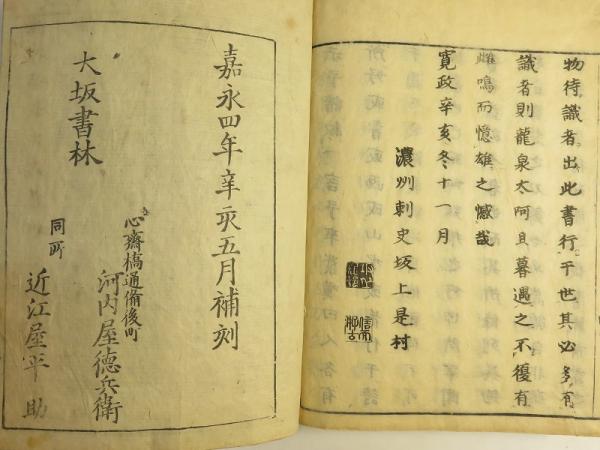 物待識者出此書行于世其必多有
識者則龍泉太阿且暮遇之不復有
雌鳴而憶雄之憾哉
寛政辛亥冬十一月
濃州刺史坂上是村
嘉永四年辛亥五月補刻
大坂書林
心齋橋通備後町
河内屋徳兵衛
同所
近江屋平助